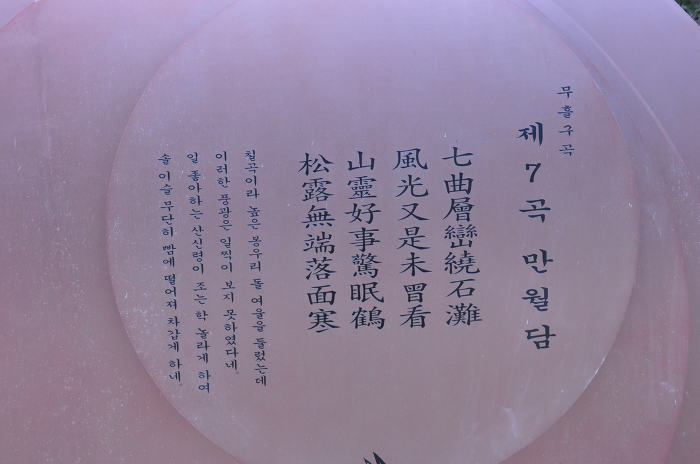 무흘구곡
제7곡 만월담
七曲層巒繞石灘
風光又是未曾看
山靈好事驚眠鶴
松露無端落面寒
칠곡이라 높은 봉우리 돌 여울을 둘렀는데
이러한 풍광은 일찍이 보지 못하였다네.
일 좋아하는 산신령이 조는 학 놀라게 하여
솔 이슬 무단히 뺨에 떨어져 차갑게 하네.